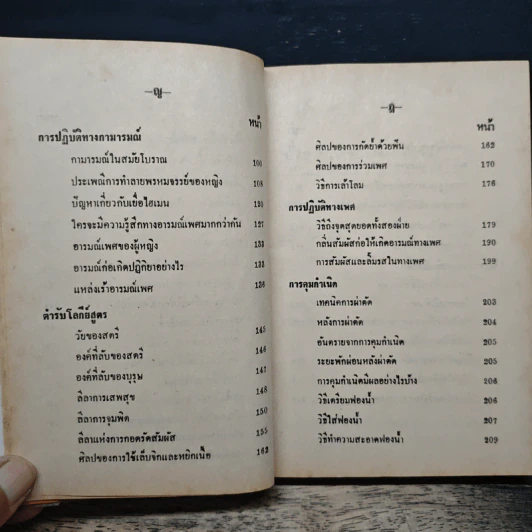 —ญ—
หน้า
การปฏิบัติทางกามารมณ์
กามารมณ์ในสมัยโบราณ 100
ประเพณีการทำลายพรหมจรรย์ของหญิง 108
ปัญหาเกี่ยวกับเยื่อไฮเมน 119
ใครจะมีความรู้สึกทางอารมณ์เพศมากกว่ากัน 127
อารมณ์เพศของผู้หญิง 132
อารมณ์ก่อเกิดปฏิกิยาอย่างไร 133
แหล่งเร้าอารมณ์เพศ 136
ตำรับโลกีย์สูตร
วัยของสตรี 145
องค์ที่ลับของสตรี 146
องค์ที่ลับของบุรุษ 147
ลีลาการเสพสุข 148
ลีลาการจุมพิต 150
ลีลาแห่งการกอดรัดสัมผัส 155
ศิลปของการใช้เล็บจิกและหยิกเนื้อ 162
—ฎ—
หน้า
ศิลปของการกัดย้ำด้วยฟัน 163
ศิลปของการร่วมเพศ 170
วิธีการเล้าโลม 176
การปฏิบัติทางเพศ
วิธีถึงจุดสุดยอดทั้งสองฝ่าย 179
กลิ่นสัมผัสก่อให้เกิดอารมณ์ทางเพศ 190
การสัมผัสและลิ้มรสในทางเพศ 199
การคุมกำเนิด
เทคนิคการผ่าตัด 203
หลังการผ่าตัด 204
อันตรายจากการคุมกำเนิด 205
ระยะพักผ่อนหลังผ่าตัด 205
การคุมกำเนิดมีผลอย่างไรบ้าง 206
วิธีเตรียมฟองน้ำ 206
วิธีใส่ฟองน้ำ 207
วิธีทำความสะอาดฟองน้ำ 209